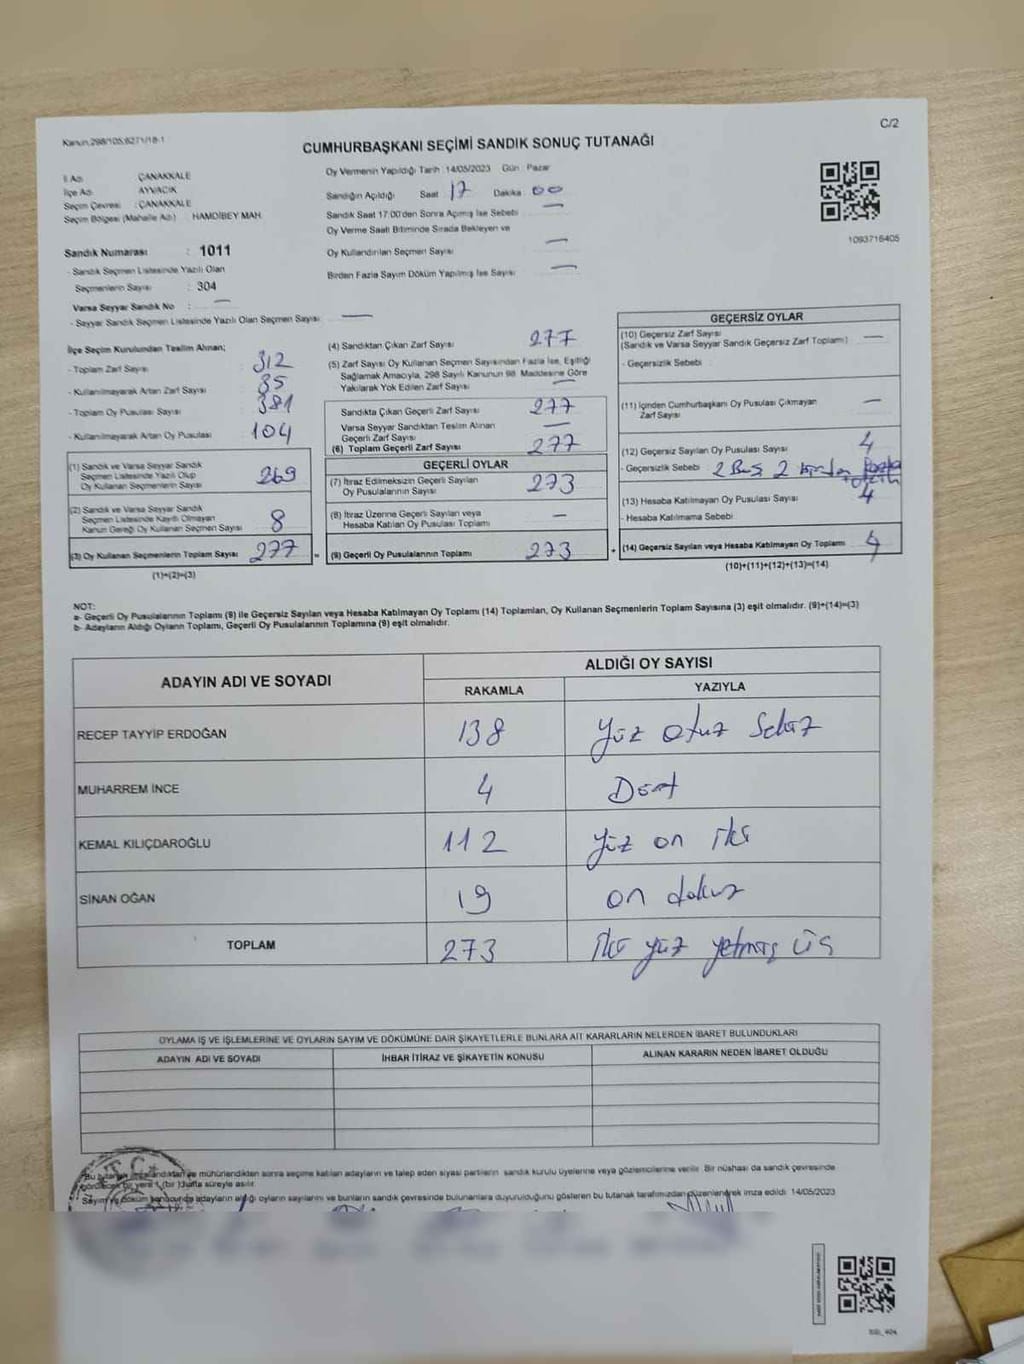 Kanun.298/105;6271/18-1
C/2
CUMHURBAŞKANI SEÇİMİ SANDIK SONUÇ TUTANAĞI
İl Adı : ÇANAKKALE
İlçe Adı : AYVACIK
Seçim Çevresi : ÇANAKKALE
Seçim Bölgesi (Mahalle Adı) : HAMDİBEY MAH.
Oy Vermenin Yapıldığı Tarih :14/05/2023 Gün : Pazar
Sandığın Açıldığı Saat : 17 Dakika : 00
Sandık Saat 17:00'den Sonra Açılmış İse Sebebi : —
Oy Verme Saati Bitiminde Sırada Bekleyen ve
Oy Kullandırılan Seçmen Sayısı : —
Birden Fazla Sayım Döküm Yapılmış İse Sayısı : —
1093716405
Sandık Numarası : 1011
- Sandık Seçmen Listesinde Yazılı Olan
Seçmenlerin Sayısı : 304
Varsa Seyyar Sandık No : —
- Seyyar Sandık Seçmen Listesinde Yazılı Olan Seçmen Sayısı : —
İlçe Seçim Kurulundan Teslim Alınan;
- Toplam Zarf Sayısı : 312
- Kullanılmayarak Artan Zarf Sayısı : 35
- Toplam Oy Pusulası Sayısı : 381
- Kullanılmayarak Artan Oy Pusulası : 104
(1) Sandık ve Varsa Seyyar Sandık
Seçmen Listesinde Yazılı Olup
Oy Kullanan Seçmenlerin Sayısı : 269
(2) Sandık ve Varsa Seyyar Sandık
Seçmen Listesinde Kayıtlı Olmayan
Kanun Gereği Oy Kullanan Seçmen Sayısı : 8
(3) Oy Kullanan Seçmenlerin Toplam Sayısı : 277
(1)+(2)=(3)
(4) Sandıktan Çıkan Zarf Sayısı : 277
(5) Zarf Sayısı Oy Kullanan Seçmen Sayısından Fazla İse, Eşitliği
Sağlamak Amacıyla, 298 Sayılı Kanunun 98. Maddesine Göre
Yakılarak Yok Edilen Zarf Sayısı : —
Sandıkta Çıkan Geçerli Zarf Sayısı : 277
Varsa Seyyar Sandıktan Teslim Alınan
Geçerli Zarf Sayısı : —
(6) Toplam Geçerli Zarf Sayısı : 277
GEÇERLİ OYLAR
(7) İtiraz Edilmeksizin Geçerli Sayılan
Oy Pusulalarının Sayısı : 273
(8) İtiraz Üzerine Geçerli Sayılan veya
Hesaba Katılan Oy Pusulası Toplamı : —
= (9) Geçerli Oy Pusulalarının Toplamı : 273
GEÇERSİZ OYLAR
(10) Geçersiz Zarf Sayısı
(Sandık ve Varsa Seyyar Sandık Geçersiz Zarf Toplamı) : —
- Geçersizlik Sebebi :
(11) İçinden Cumhurbaşkanı Oy Pusulası Çıkmayan
Zarf Sayısı : —
(12) Geçersiz Sayılan Oy Pusulası Sayısı : 4
- Geçersizlik Sebebi : 2 Boş 2 birden fazla
(13) Hesaba Katılmayan Oy Pusulası Sayısı : 4
- Hesaba Katılmama Sebebi :
+ (14) Geçersiz Sayılan veya Hesaba Katılmayan Oy Toplamı : 4
(10)+(11)+(12)+(13)=(14)
NOT:
a- Geçerli Oy Pusulalarının Toplamı (9) ile Geçersiz Sayılan veya Hesaba Katılmayan Oy Toplamı (14) Toplamları, Oy Kullanan Seçmenlerin Toplam Sayısına (3) eşit olmalıdır. (9)+(14)=(3)
b- Adayların Aldığı Oyların Toplamı, Geçerli Oy Pusulalarının Toplamına (9) eşit olmalıdır.
ADAYIN ADI VE SOYADI
ALDIĞI OY SAYISI
RAKAMLA YAZIYLA
RECEP TAYYİP ERDOĞAN 138 yüz otuz sekiz
MUHARREM İNCE 4 Dört
KEMAL KILIÇDAROĞLU 112 yüz on iki
SİNAN OĞAN 19 on dokuz
TOPLAM 273 iki yüz yetmiş üç
OYLAMA İŞ VE İŞLEMLERİNE VE OYLARIN SAYIM VE DÖKÜMÜNE DAİR ŞİKAYETLERLE BUNLARA AİT KARARLARIN NELERDEN İBARET BULUNDUKLARI
ADAYIN ADI VE SOYADI İHBAR İTİRAZ VE ŞİKAYETİN KONUSU ALINAN KARARIN NEDEN İBARET OLDUĞU
T.C.
Bu tutanak imzalandıktan ve mühürlendikten sonra seçime katılan adayların ve talep eden siyasi partilerin sandık kurulu üyelerine veya gözlemcilerine verilir. Bir nüshası da sandık çevresinde
görülecek bir yere 1 (bir) hafta süreyle asılır.
Sayım ve döküm sonucunda adayların aldığı oyların sayılarını ve bunların sandık çevresinde bulunanlara duyurulduğunu gösteren bu tutanak tarafımızdan düzenlenerek imza edildi. 14/05/2023